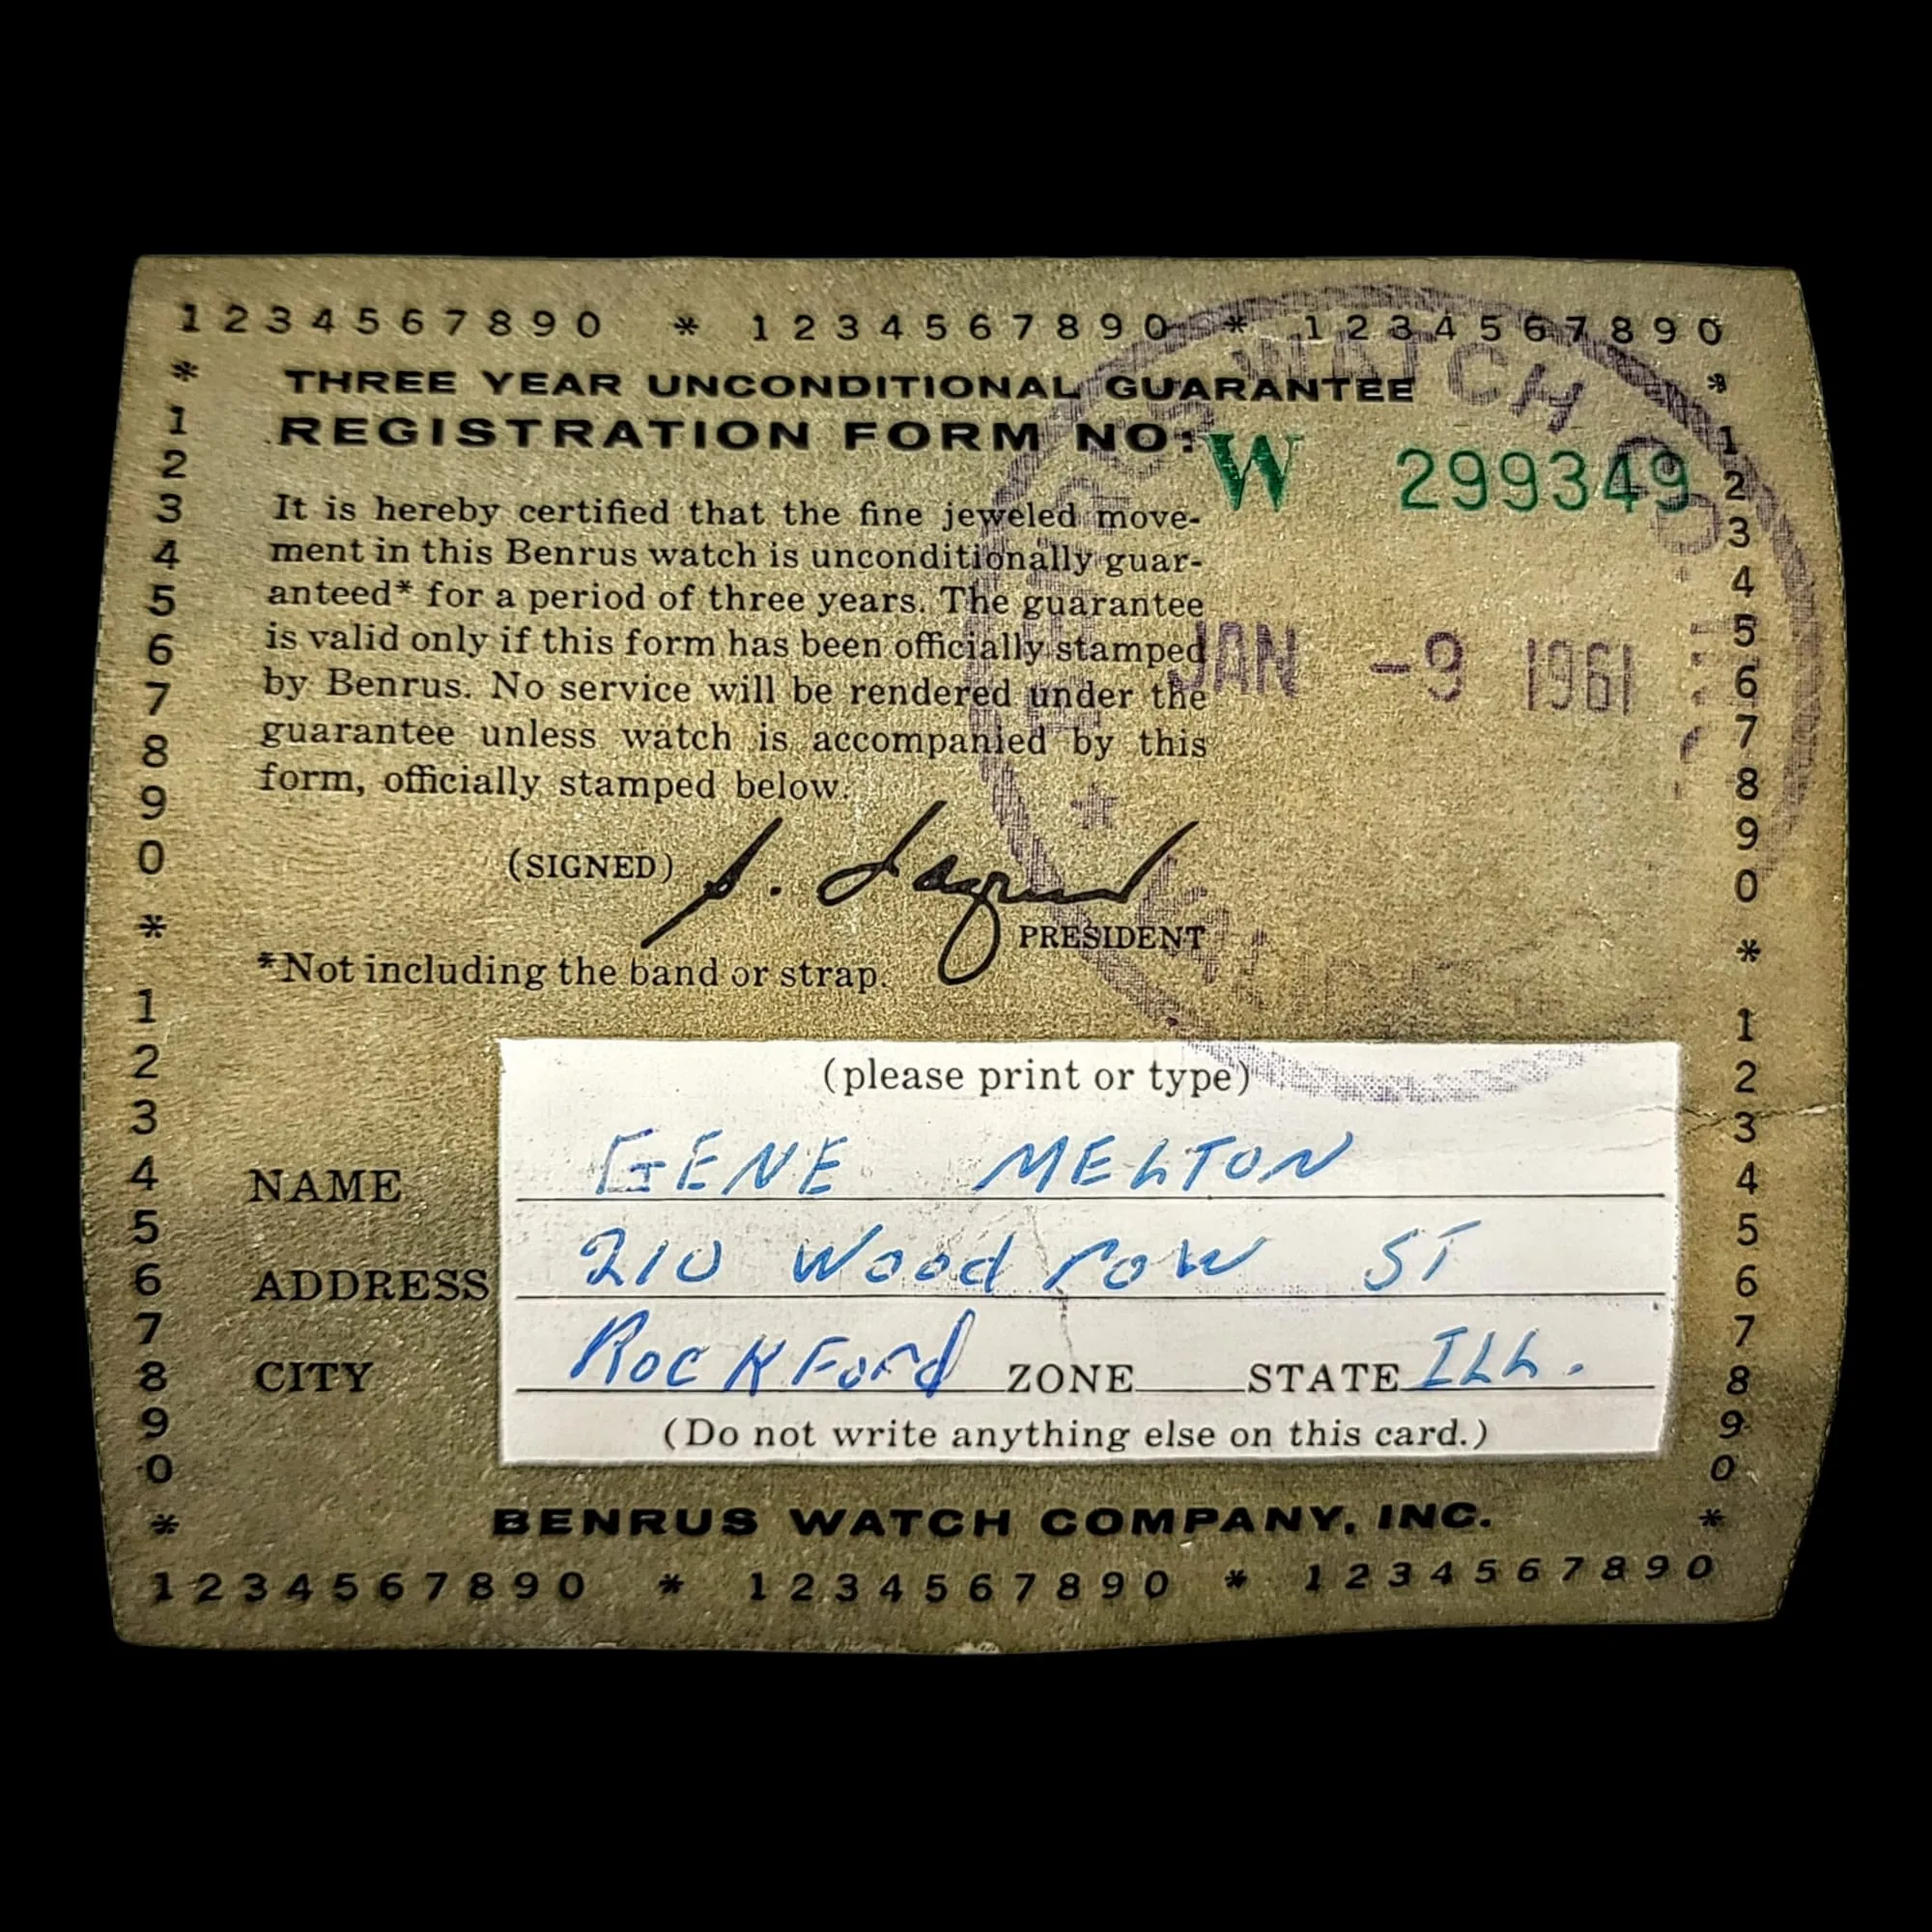 1 2 3 4 5 6 7 8 9 0 * 1 2 3 4 5 6 7 8 9 0 * 1 2 3 4 5 6 7 8 9 0
THREE YEAR UNCONDITIONAL GUARANTEE
REGISTRATION FORM NO: W 299349
It is hereby certified that the fine jeweled move-
ment in this Benrus watch is unconditionally guar-
anteed* for a period of three years. The guarantee
is valid only if this form has been officially stamped
by Benrus. No service will be rendered under the
guarantee unless watch is accompanied by this
form, officially stamped below.
BENRUS WATCH CO
JAN -9 1961
(SIGNED) S. Lazrus
PRESIDENT
*Not including the band or strap.
(please print or type)
NAME GENE MELTON
ADDRESS 210 Woodrow ST
CITY Rockford ZONE STATE ILL.
(Do not write anything else on this card.)
BENRUS WATCH COMPANY, INC.
1 2 3 4 5 6 7 8 9 0 * 1 2 3 4 5 6 7 8 9 0 * 1 2 3 4 5 6 7 8 9 0
* 1 2 3 4 5 6 7 8 9 0 * 1 2 3 4 5 6 7 8 9 0 *
* 1 2 3 4 5 6 7 8 9 0 * 1 2 3 4 5 6 7 8 9 0 *